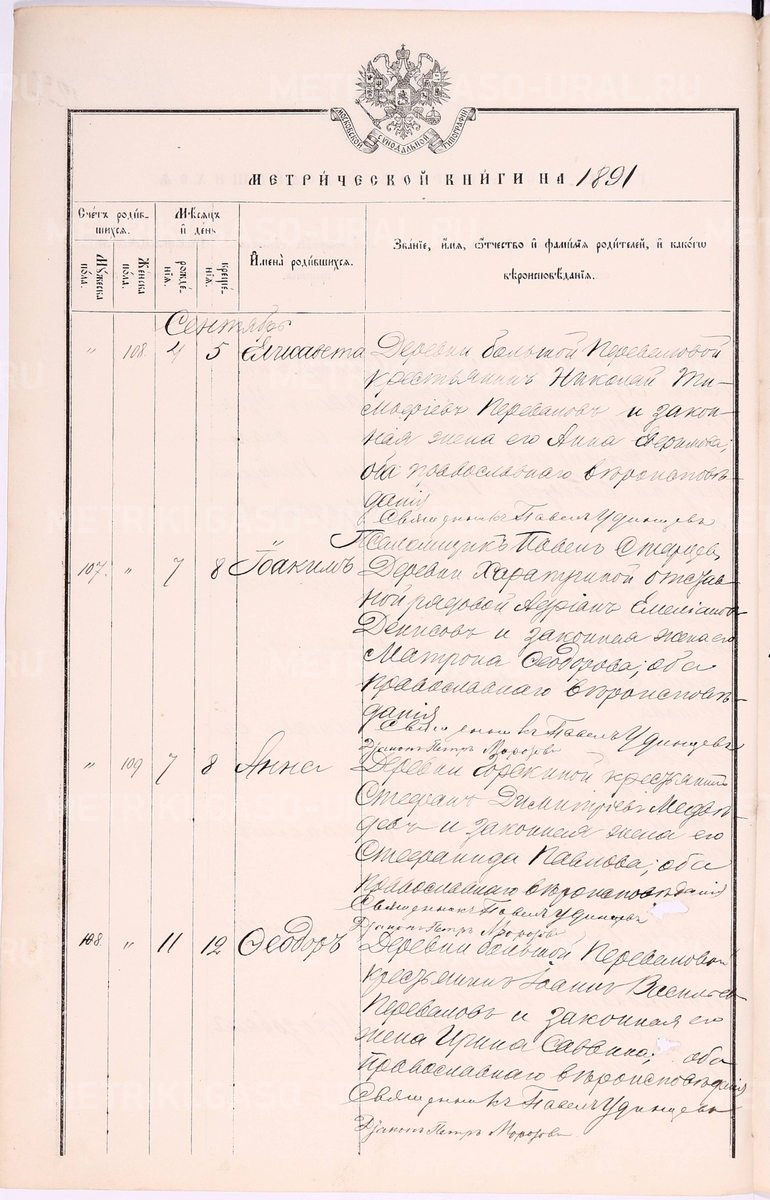 МОСКОВСКОЙ СѴНОДАЛЬНОЙ ТИПОГРАФІИ
МЕТРИ́ЧЕСКОЙ КНИ́ГИ НА 1891
Сче́тъ роди́в-
шихся.
М҃жеска по́ла.
Же́нска по́ла.
Мѣ́сяцъ
и҆ де́нь
рожде́-
нїя.
креще́-
нїя.
И҆мена̀ роди́вшихся.
Зва́нїе, и҆́мя, ѻ҆́тчество и҆ фами́лїя роди́телей, и҆ како́гѡ
вѣроисповѣ́данїя.
Сентябрь
" 108. 4 5 Елисавета Деревни Большой Переваловой
крестьянинъ Николай Ти-
мофіевъ Переваловъ и закон-
ная жена его Анна Ефимова;
оба православнаго вѣроисповѣ-
данія
Священникъ Павелъ Удинцевъ
Псаломщикъ Павелъ Старцев
107. " 7 8 Іоакимъ Деревни отстав-
ной рядовой Адріанъ Емеліановъ
Денисовъ и законная жена его
Матрона Ѳеодорова; оба
православнаго вѣроисповѣ-
данія
Священникъ Павелъ Удинцевъ
Діаконъ Петръ Морозовъ
" 109 7 8 Анна Деревни крестьянинъ
Стефанъ Димитріевъ Медвѣ-
девъ и законная жена его
Стефанида Павлова; оба
православнаго вѣроисповѣданія
Священникъ Павелъ Удинцевъ
Діаконъ Петръ Морозовъ
108. " 11 12 Ѳеодоръ Деревни Большой Переваловой
крестьянинъ Іоаннъ Васильевъ
Переваловъ и законная его
жена Ирина Саввина; оба
православнаго вѣроисповѣданія
Священникъ Павелъ Удинцевъ
Діаконъ Петръ Морозовъ